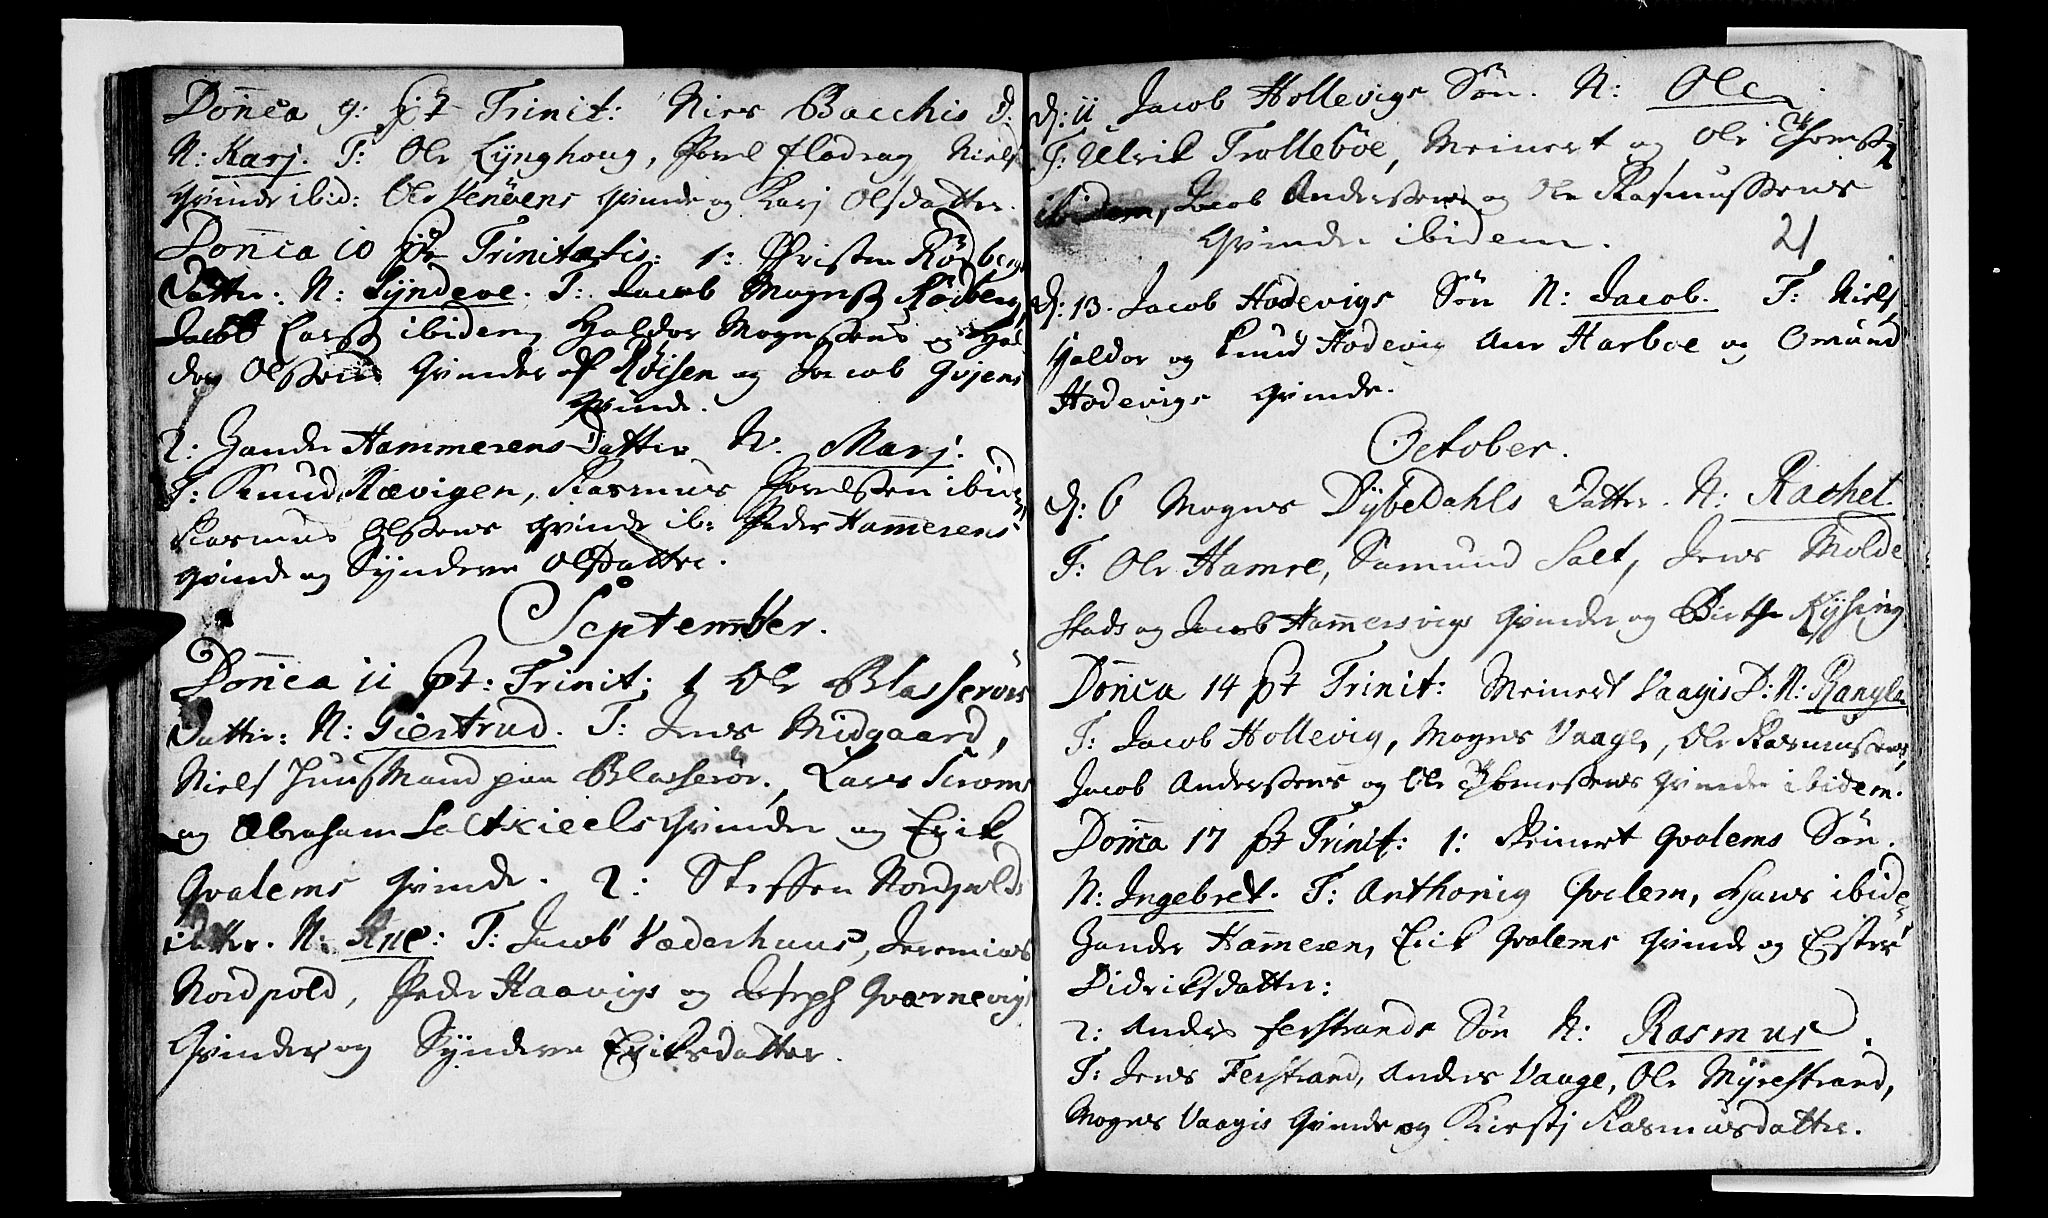 Doñica 9: pt Trinit: Niels Bacchis D:
N: Karj. T: Ole Lÿnghoug, Povel flodrag, Niels
Qvinde ibid: Ole Venöens Qvinde og Karj Olsdatter.
Doñica 10 pt Trinitatis: 1: Christen Rödbergs
Datter: N: Sÿndeve. T: Jacob Mogenss Rödberg,
Jacob Larss ibidem, Haldor Mognssens og Hal
dor Olssens Qvinder af Röisen og Jacob
Qvinde.
2: Zander Hammerens Datter N. Marj.
T: Knud Rævigen, Rasmus Povelssen ibid:
Rasmus Olssens Qvinde ib: Peder Ham̄erens
Qvinde og Sÿndeve Olsdatter.
September.
Doñica 11 pt: Trinit: 1 Ole Blasserörs
Datter: N: Giertrud. T: Jens Midgaard,
Niels Huusmand paa Blasserör, Lars Ströms
og Abraham Saltkieels Qvinder og Erik
Qvalems Qvinde. 2: Steffen Nordpolds
Datter. N: Ane: T: Jacob Væderhuus, Jeremias
Nordpold, Peder Haavigs og Joseph Qværnevigs
Qvinder og Sÿndeve Eriksdatter.
d: 11 Jacob Hollevigs Sön. N: Ole.
T: Ulrik Trollebøe, Meinert og Ole Thomess
ibidem, Jacob Anderssens og Ole Rasmussens
Qvinder ibidem.
21
d: 13. Jacob Hodevigs Sön N: Jacob. T: Niels,
Haldor og Knud Hodevig Ane Harboe og Omund
Hodevigs Qvinde.
October.
d: 6 Mogens Dÿbedahls Datter. N: Rachel
T: Ole Hamre, Samund Salt, Jens Molde
stads og Jacob Ham̄ersvigs Qvinder og Birthe
Doñica 14 pt Trinit: Meinert Vaagis D: N: Rangla
T: Jacob Hollevig, Mogens Vaage, Ole Rasmussens,
Jacob Anderssens og Ole Thomessens Qvinder ibidem.
Doñica 17 pt Trinit: 1: Reinert Qvalems Sön.
N: Ingebret. T: Anthonij Qvalem, Hans ibide
Zander Ham̄eren, Erik Qvalems Qvinde og Ester
Didriksdatter:
2: Anders Ferstrands Sön N: Rasmus.
T: Jens Ferstrand, Anders Vaage, Ole Mÿrestrand,
Mogens Vaagis Qvinde og Kirstj Rasmusdatter.